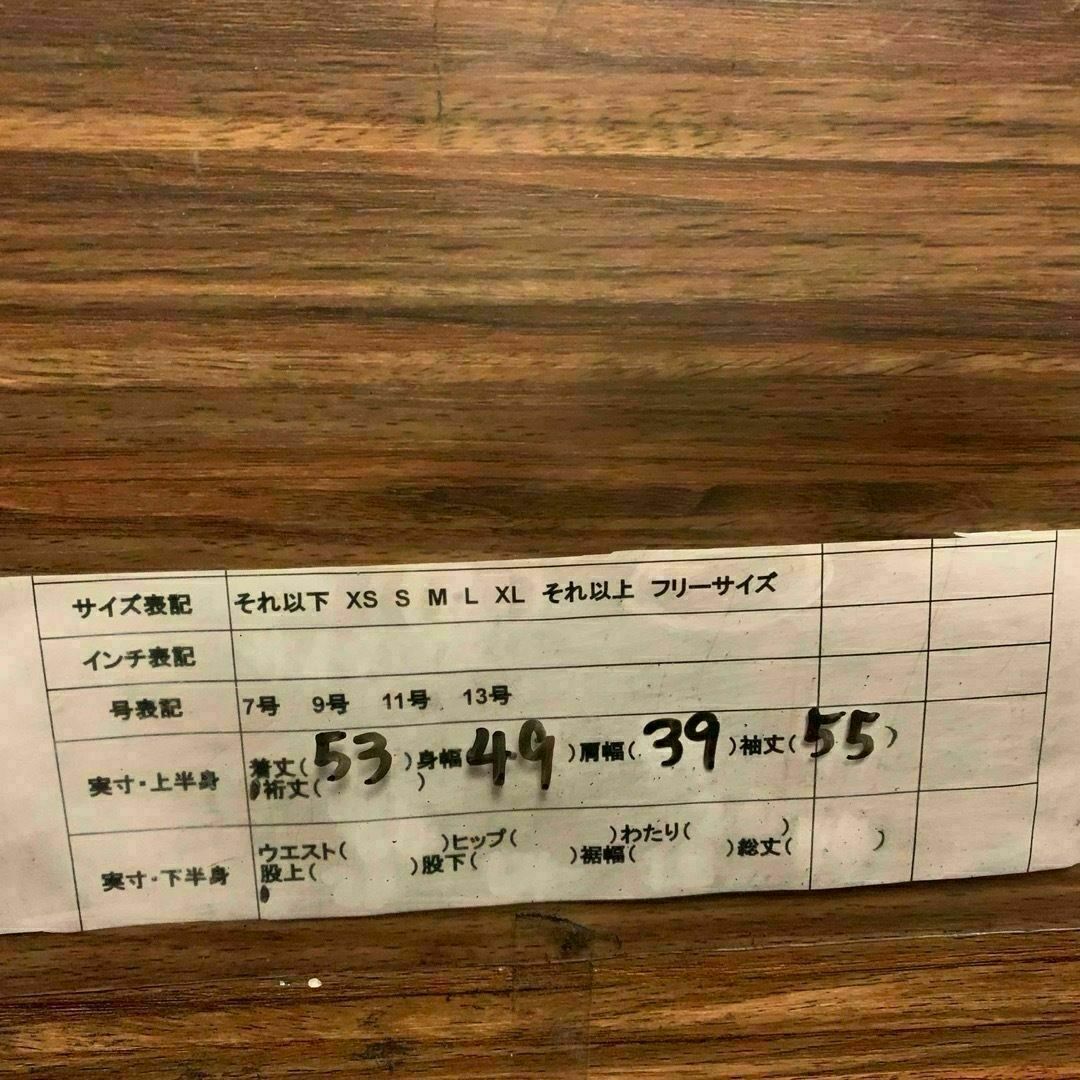 サイズ表記 それ以下 XS S M L XL それ以上 フリーサイズ
インチ表記
号表記 7号 9号 11号 13号
実寸・上半身 着丈(53)身幅49)肩幅(39)袖丈(55)
裄丈( )
実寸・下半身 ウエスト( )ヒップ( )わたり( )
股上( )股下( )裾幅( )総丈( )